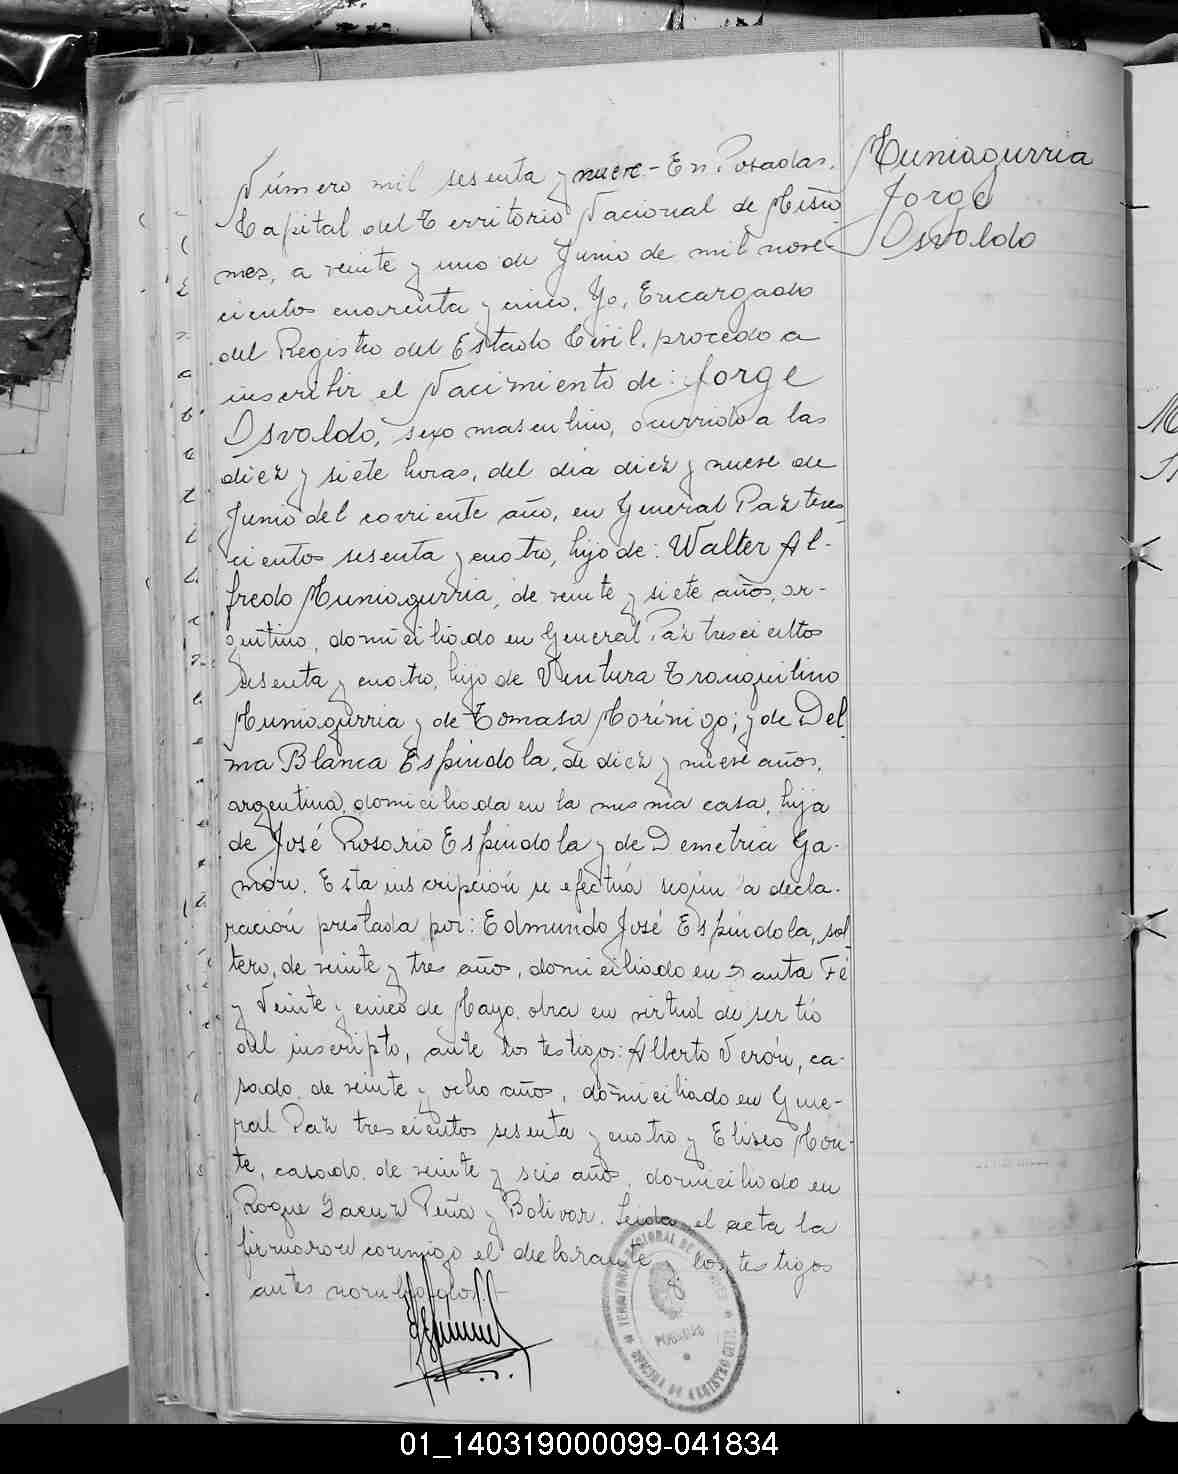 Muniagurria
Jorge
Osvaldo
Número mil sesenta y nueve.- En Posadas,
Capital del Territorio Nacional de Misio
nes, a veinte y uno de Junio de mil nove-
cientos cuarenta y cinco, Yo, Encargado
del Registro del Estado Civil, procedo a
inscribir el Nacimiento de: Jorge
Osvaldo, sexo masculino, ocurrido a las
diez y siete horas, del día diez y nueve de
Junio del corriente año, en General Paz tres-
cientos sesenta y cuatro, hijo de: Walter Al-
fredo Muniagurria, de veinte y siete años, ar-
gentino, domiciliado en General Paz trescientos
sesenta y cuatro, hijo de Ventura Tranquilino
Muniagurria y de Tomasa Morínigo; y de Del-
ma Blanca Espíndola, de diez y nueve años,
argentina, domiciliada en la misma casa, hija
de José Rosario Espíndola y de Demetria Ga-
món. Esta inscripción se efectuó según la decla-
ración prestada por: Edmundo José Espíndola, sol-
tero, de veinte y tres años, domiciliado en Santa Fé
y Veinte y cinco de Mayo, obra en virtud de ser tío
del inscripto, ante los testigos: Alberto Verón, ca-
sado, de veinte y ocho años, domiciliado en Gene-
ral Paz trescientos sesenta y cuatro y Eliseo Mon-
te, casado, de veinte y seis años, domiciliado en
Roque Saenz Peña y Bolivar. Leida el acta la
firmaron conmigo el declarante y los testigos
antes nombrados.-
01_140319000099-041834